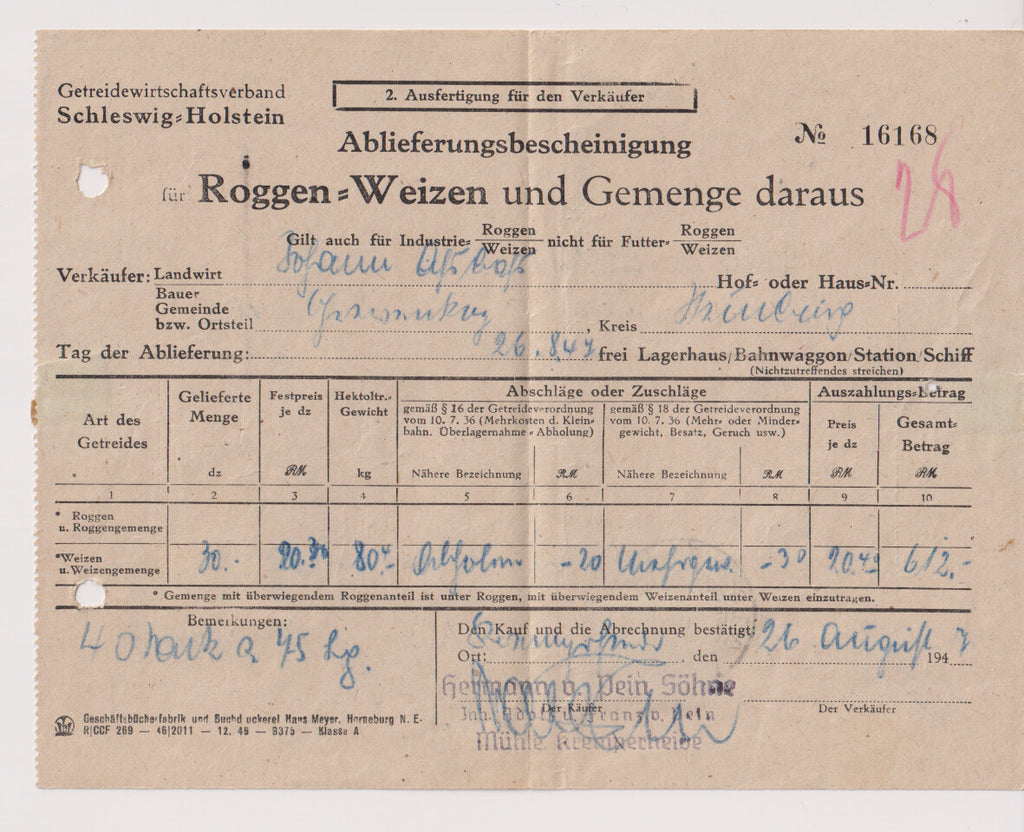 Getreidewirtschaftsverband
Schleswig-Holstein
2. Ausfertigung für den Verkäufer
№ 16168
Ablieferungsbescheinigung
28
für Roggen-Weizen und Gemenge daraus
Gilt auch für Industrie- Roggen/Weizen nicht für Futter- Roggen/Weizen
Verkäufer: Landwirt Johann Hof- oder Haus-Nr.
Bauer
Gemeinde
bzw. Ortsteil , Kreis
Tag der Ablieferung: 26.8.47 frei Lagerhaus/Bahnwaggon/Station/Schiff
(Nichtzutreffendes streichen)
Art des Getreides
Gelieferte Menge dz
Festpreis je dz RM
Hektoltr.-Gewicht kg
Abschläge oder Zuschläge
gemäß § 16 der Getreideverordnung
vom 10. 7. 36 (Mehrkosten d. Klein-
bahn. Überlagernahme - Abholung)
Nähere Bezeichnung RM
gemäß § 18 der Getreideverordnung
vom 10. 7. 36 (Mehr- oder Minder-
gewicht, Besatz, Geruch usw.)
Nähere Bezeichnung RM
Auszahlungs-Betrag
Preis je dz RM
Gesamt-Betrag RM
1 2 3 4 5 6 7 8 9 10
* Roggen
u. Roggengemenge
* Weizen
u. Weizengemenge 30.- 80 -20 -30 20.4 612.-
* Gemenge mit überwiegendem Roggenanteil ist unter Roggen, mit überwiegendem Weizenanteil unter Weizen einzutragen.
Bemerkungen:
40 a 75 kg.
Den Kauf und die Abrechnung bestätigt:
Ort: , den 26 August 1947
Hermann v. Pein Söhne
Der Käufer
Der Verkäufer
Inh. Adolf u. Franz v. Pein
Mühle Kremperheide
Geschäftsbücherfabrik und Buchdruckerei Hans Meyer, Horneburg N. E.
R|CCF 269 — 46|2011 — 12. 46 — 9375 — Klasse A